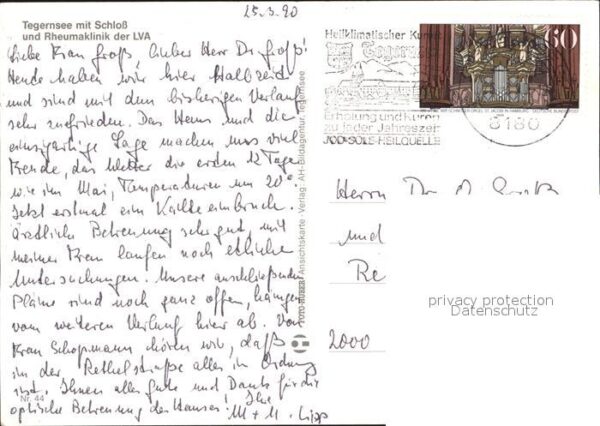 Tegernsee mit Schloß
und Rheumaklinik der LVA
25.3.90
Liebe Frau Groß, lieber Herr Dr. Groß!
Heute haben wir hier Halbzeit
und sind mit dem bisherigen Verlauf
sehr zufrieden. Das Haus und die
einzigartige Lage machen uns viel
Freude, das Wetter die ersten 12 Tage
wie im Mai, Temperaturen um 20°.
Jetzt erstmal ein Kälteeinbruch.
Ärztliche Betreuung sehr gut, mit
meiner Frau laufen noch etliche
Untersuchungen. Unsere anschließenden
Pläne sind noch ganz offen, hängen
vom weiteren Verlauf hier ab. Von
Frau Schopmann hören wir, daß
in der Rethelstraße alles in Ordnung
ist. Ihnen alles Gute und Dank für die
optische Betreuung des Hauses! Ihre
M + M. Lipp
Nr. 44
Ansichtskarte Verlag AH-Bildagentur, Tegernsee
Heilklimatischer Kurort
Tegernsee
Erholung und Kuren
zu jeder Jahreszeit
JOD-SOLE-HEILQUELLE
60
DEUTSCHE BUNDESPOST
8180
Herrn Dr.
und
Re
2000
privacy protection
Datenschutz